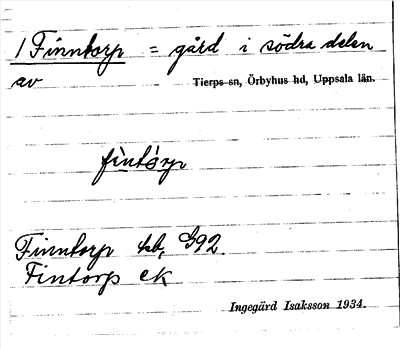 1 Finntorp = gård i södra delen
av Tierps sn, Örbyhus hd, Uppsala län.
fìntórp
Finntorp kb, G92.
Fintorp ek
Ingegärd Isaksson 1934.